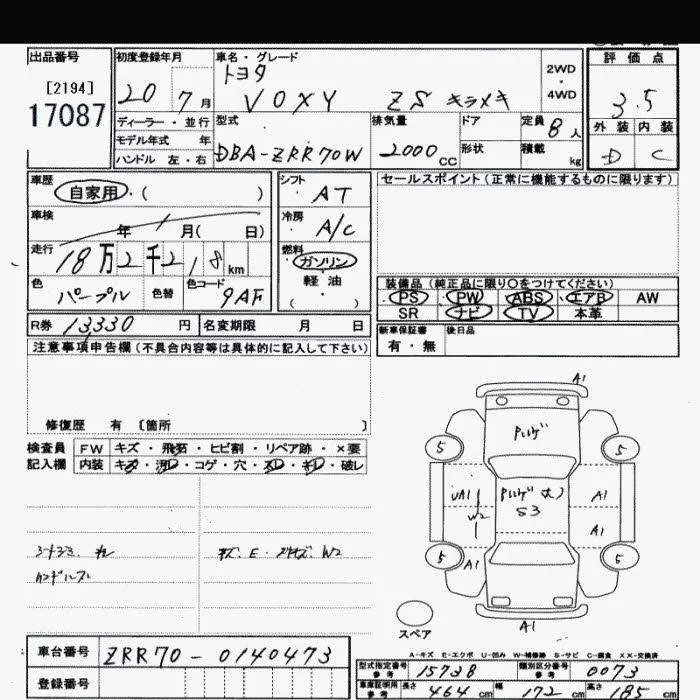 出品番号
[2194]
17087
初度登録年月
20 7月
車名・グレード
トヨタ
VOXY ZS キラメキ
2WD
4WD
評価点
3.5
外装 内装
D C
ディーラー・並行
モデル年式 年
ハンドル 左・右
型式
DBA-ZRR70W
排気量
2000 CC
ドア
形状
定員 8人
積載 kg
車歴
自家用・( )
車検
年 月( 日)
走行
18万2千218km
色
パープル
色替
色コード
9AF
シフト
AT
冷房
A/C
燃料
ガソリン
軽油
( )
セールスポイント(正常に機能するものに限ります)
装備品(純正品に限り○をつけてください)
PS PW ABS エアB AW
SR ナビ TV 本革
新車保証書
有・無
後日品
R券 13330円
名変期限 月 日
注意事項申告欄(不具合内容等は具体的に記入して下さい)
修復歴 有 〔箇所 〕
検査員
記入欄
FW キズ・飛石・ヒビ割・リペア跡・×要
内装 キズ・汚レ・コゲ・穴・スレ・キレ・破レ
キズ・E・ W2
A1
5 5
UA1
W2
S3
A1
A1
5 5
A1
A1
スペア
A-キズ E-エクボ U-凹み W-補修跡 S-サビ C-腐食 XX-交換済
車台番号
ZRR70-0140473
登録番号
型式指定番号
参考
15738
類別区分番号
参考
0073
車庫証明用
参考
長さ 464cm 幅 172cm 高さ 185cm